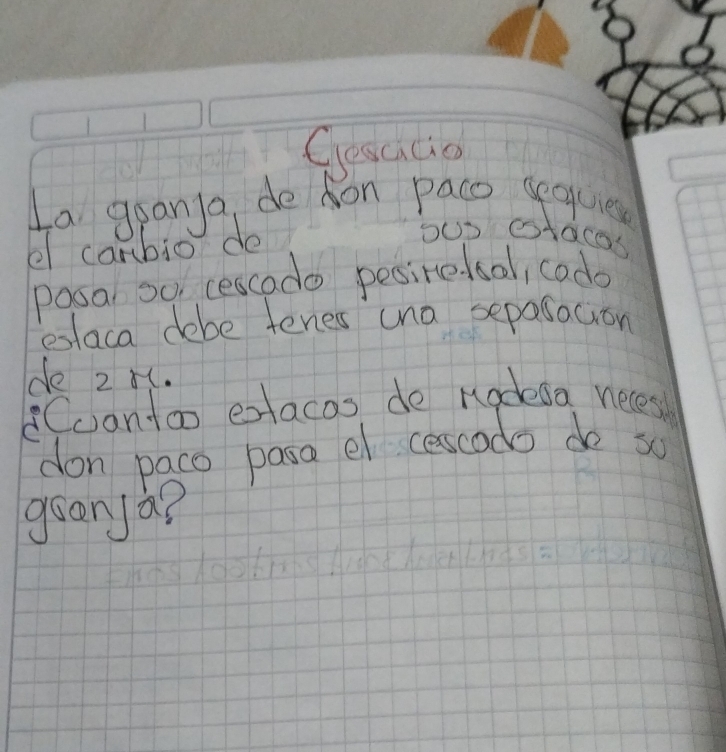 Ejercicio
La granja, de don paco requiere
el cambio de sus estacas
para su cercado perimetral, cada
estaca debe tener una separacion
de 2 M.
¿Cuantas estacas de Madera necesita
don paco para el cercado de su
granja?